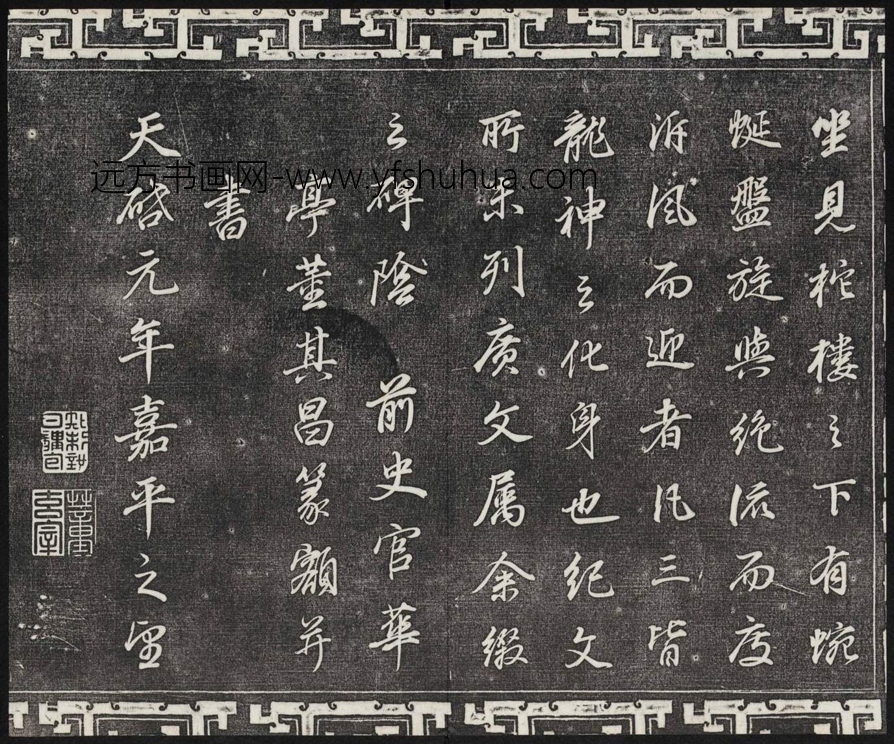 坐見柁樓之下有蜿
蜒盤旋與絕流而度
泝風而迎者凡三皆
龍神之化身也紀文
所未列廣文属余綴
之碑陰 前史官華
亭董其昌篆額并
書
天啓元年嘉平之望
远方书画网-www.yfshuhua.com